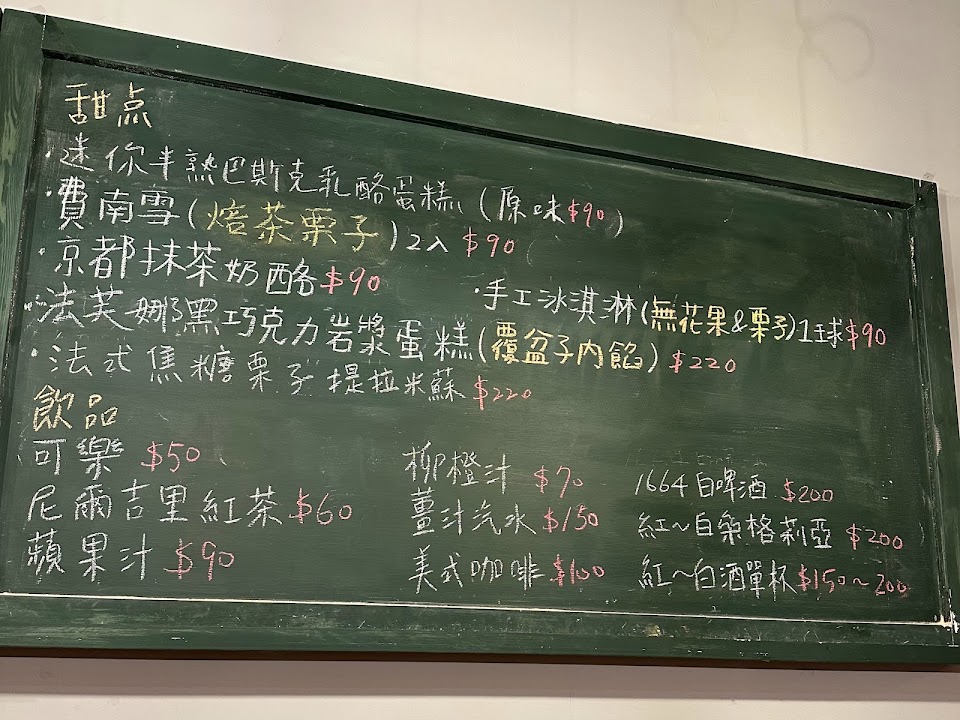 甜点
·迷你半熟巴斯克乳酪蛋糕(原味$90)
·費南雪(焙茶栗子)2入 $90
·京都抹茶奶酪$90
·手工冰淇淋(無花果&栗子)1球$90
·法芙娜黑巧克力岩漿蛋糕(覆盆子內餡) $220
·法式焦糖栗子提拉米蘇 $220
飲品
可樂 $50
尼爾吉里紅茶$60
蘋果汁 $90
柳橙汁 $70
薑汁汽水 $150
美式咖啡 $100
1664白啤酒 $200
紅~白桑格莉亞 $200
紅~白酒單杯$150~200